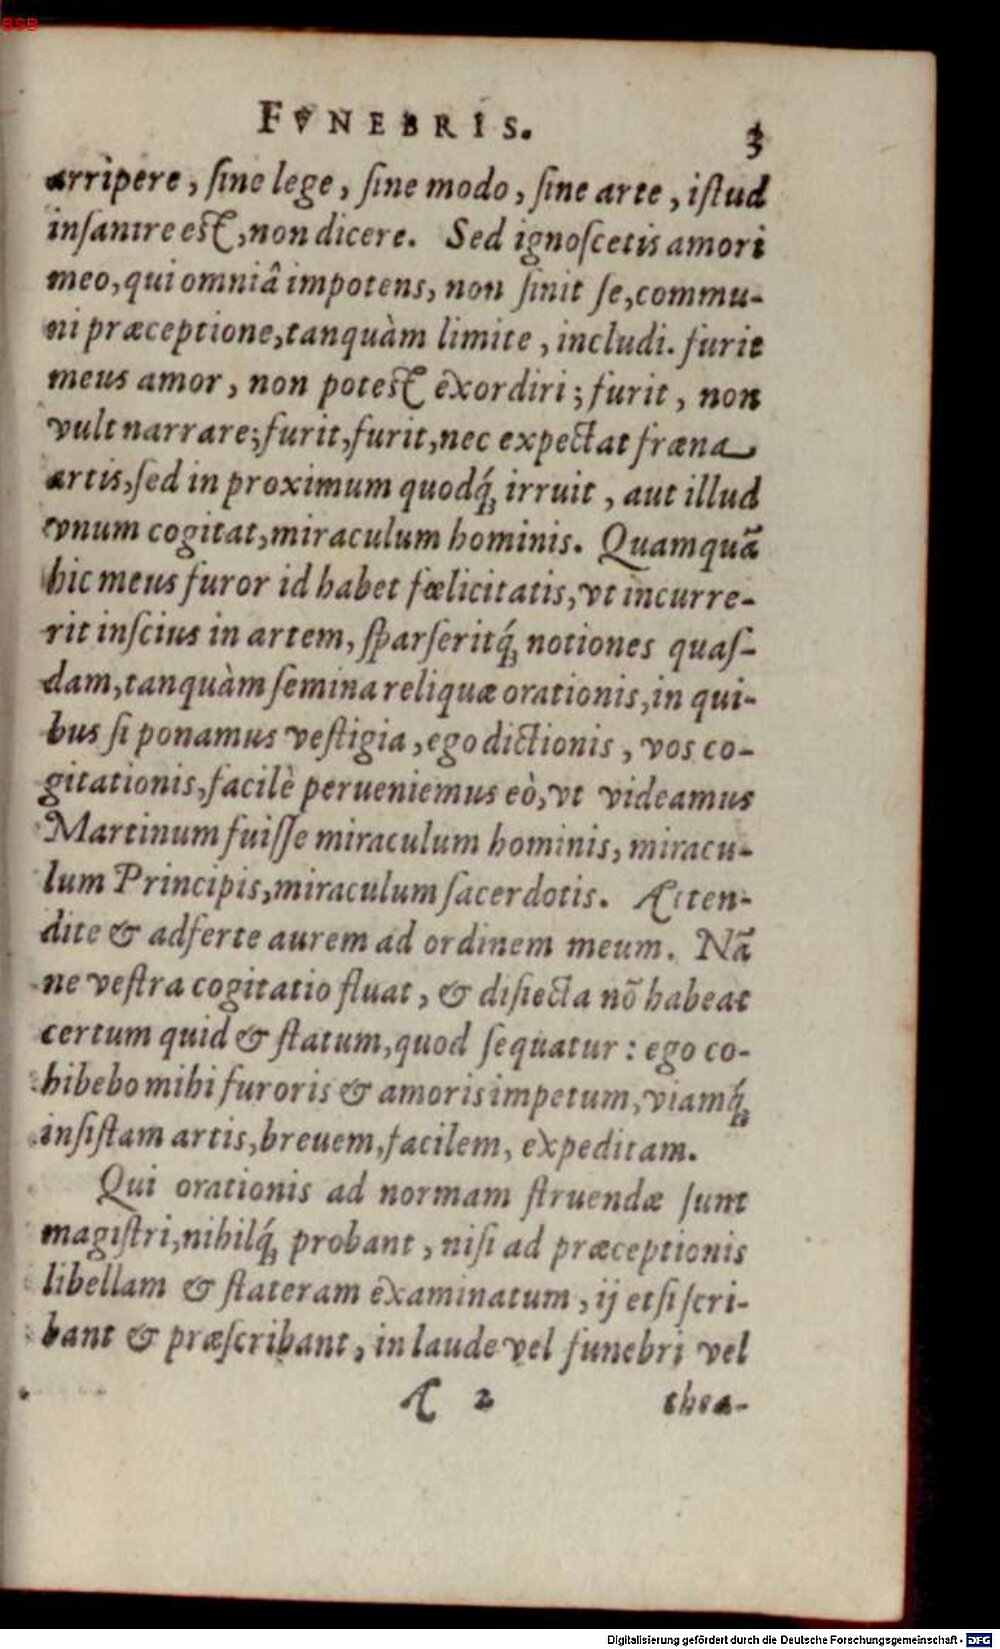 BSB
FVNEBRIS. 3
arripere, ſine lege, ſine modo, ſine arte, iſtud
inſanire eſt, non dicere. Sed ignoſcetis amori
meo, qui omniâ impotens, non ſinit ſe, commu-
ni præceptione, tanquàm limite, includi. furit
meus amor, non poteſt exordiri; furit, non
vult narrare; furit, furit, nec expectat fræna
artis, ſed in proximum quodq́; irruit, aut illud
vnum cogitat, miraculum hominis. Quamquã
hic meus furor id habet fœlicitatis, vt incurre-
rit inſcius in artem, ſparſeritq́; notiones quaſ-
dam, tanquàm ſemina reliquæ orationis, in qui-
bus ſi ponamus veſtigia, ego dictionis, vos co-
gitationis, facilè perueniemus eò, vt videamus
Martinum fuiſſe miraculum hominis, miracu-
lum Principis, miraculum ſacerdotis. Atten-
dite & adferte aurem ad ordinem meum. Nã
ne veſtra cogitatio fluat, & diſiecta nõ habeat
certum quid & ſtatum, quod ſequatur: ego co-
hibebo mihi furoris & amoris impetum, viamq́;
inſiſtam artis, breuem, facilem, expeditam.
Qui orationis ad normam ſtruendæ ſunt
magiſtri, nihilq́; probant, niſi ad præceptionis
libellam & ſtateram examinatum, ij etſi ſcri-
bant & præſcribant, in laude vel funebri vel
A 2 thea-
Digitalisierung gefördert durch die Deutsche Forschungsgemeinschaft - DFG